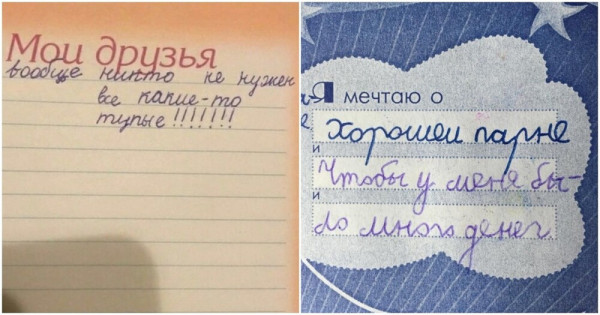 Мои друзья
вообще никто не нужен
все какие-то
тупые!!!!!!!
Я мечтаю о
хорошем парне
и
Чтобы у меня бы-
и
ло много денег